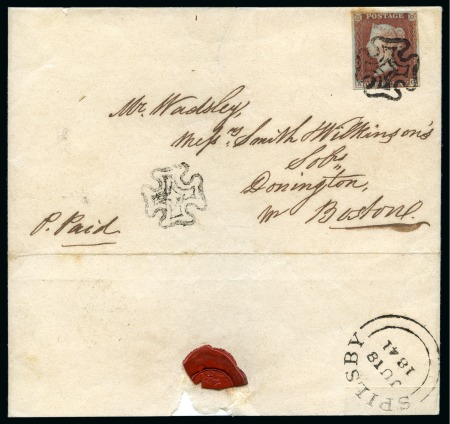 POSTAGE
Mr. Wadsley,
Messrs. Smith & Wilkinson's
Sobs,
Donington,
nr Boston.
P. Paid
SPILSBY
JU 18
1841